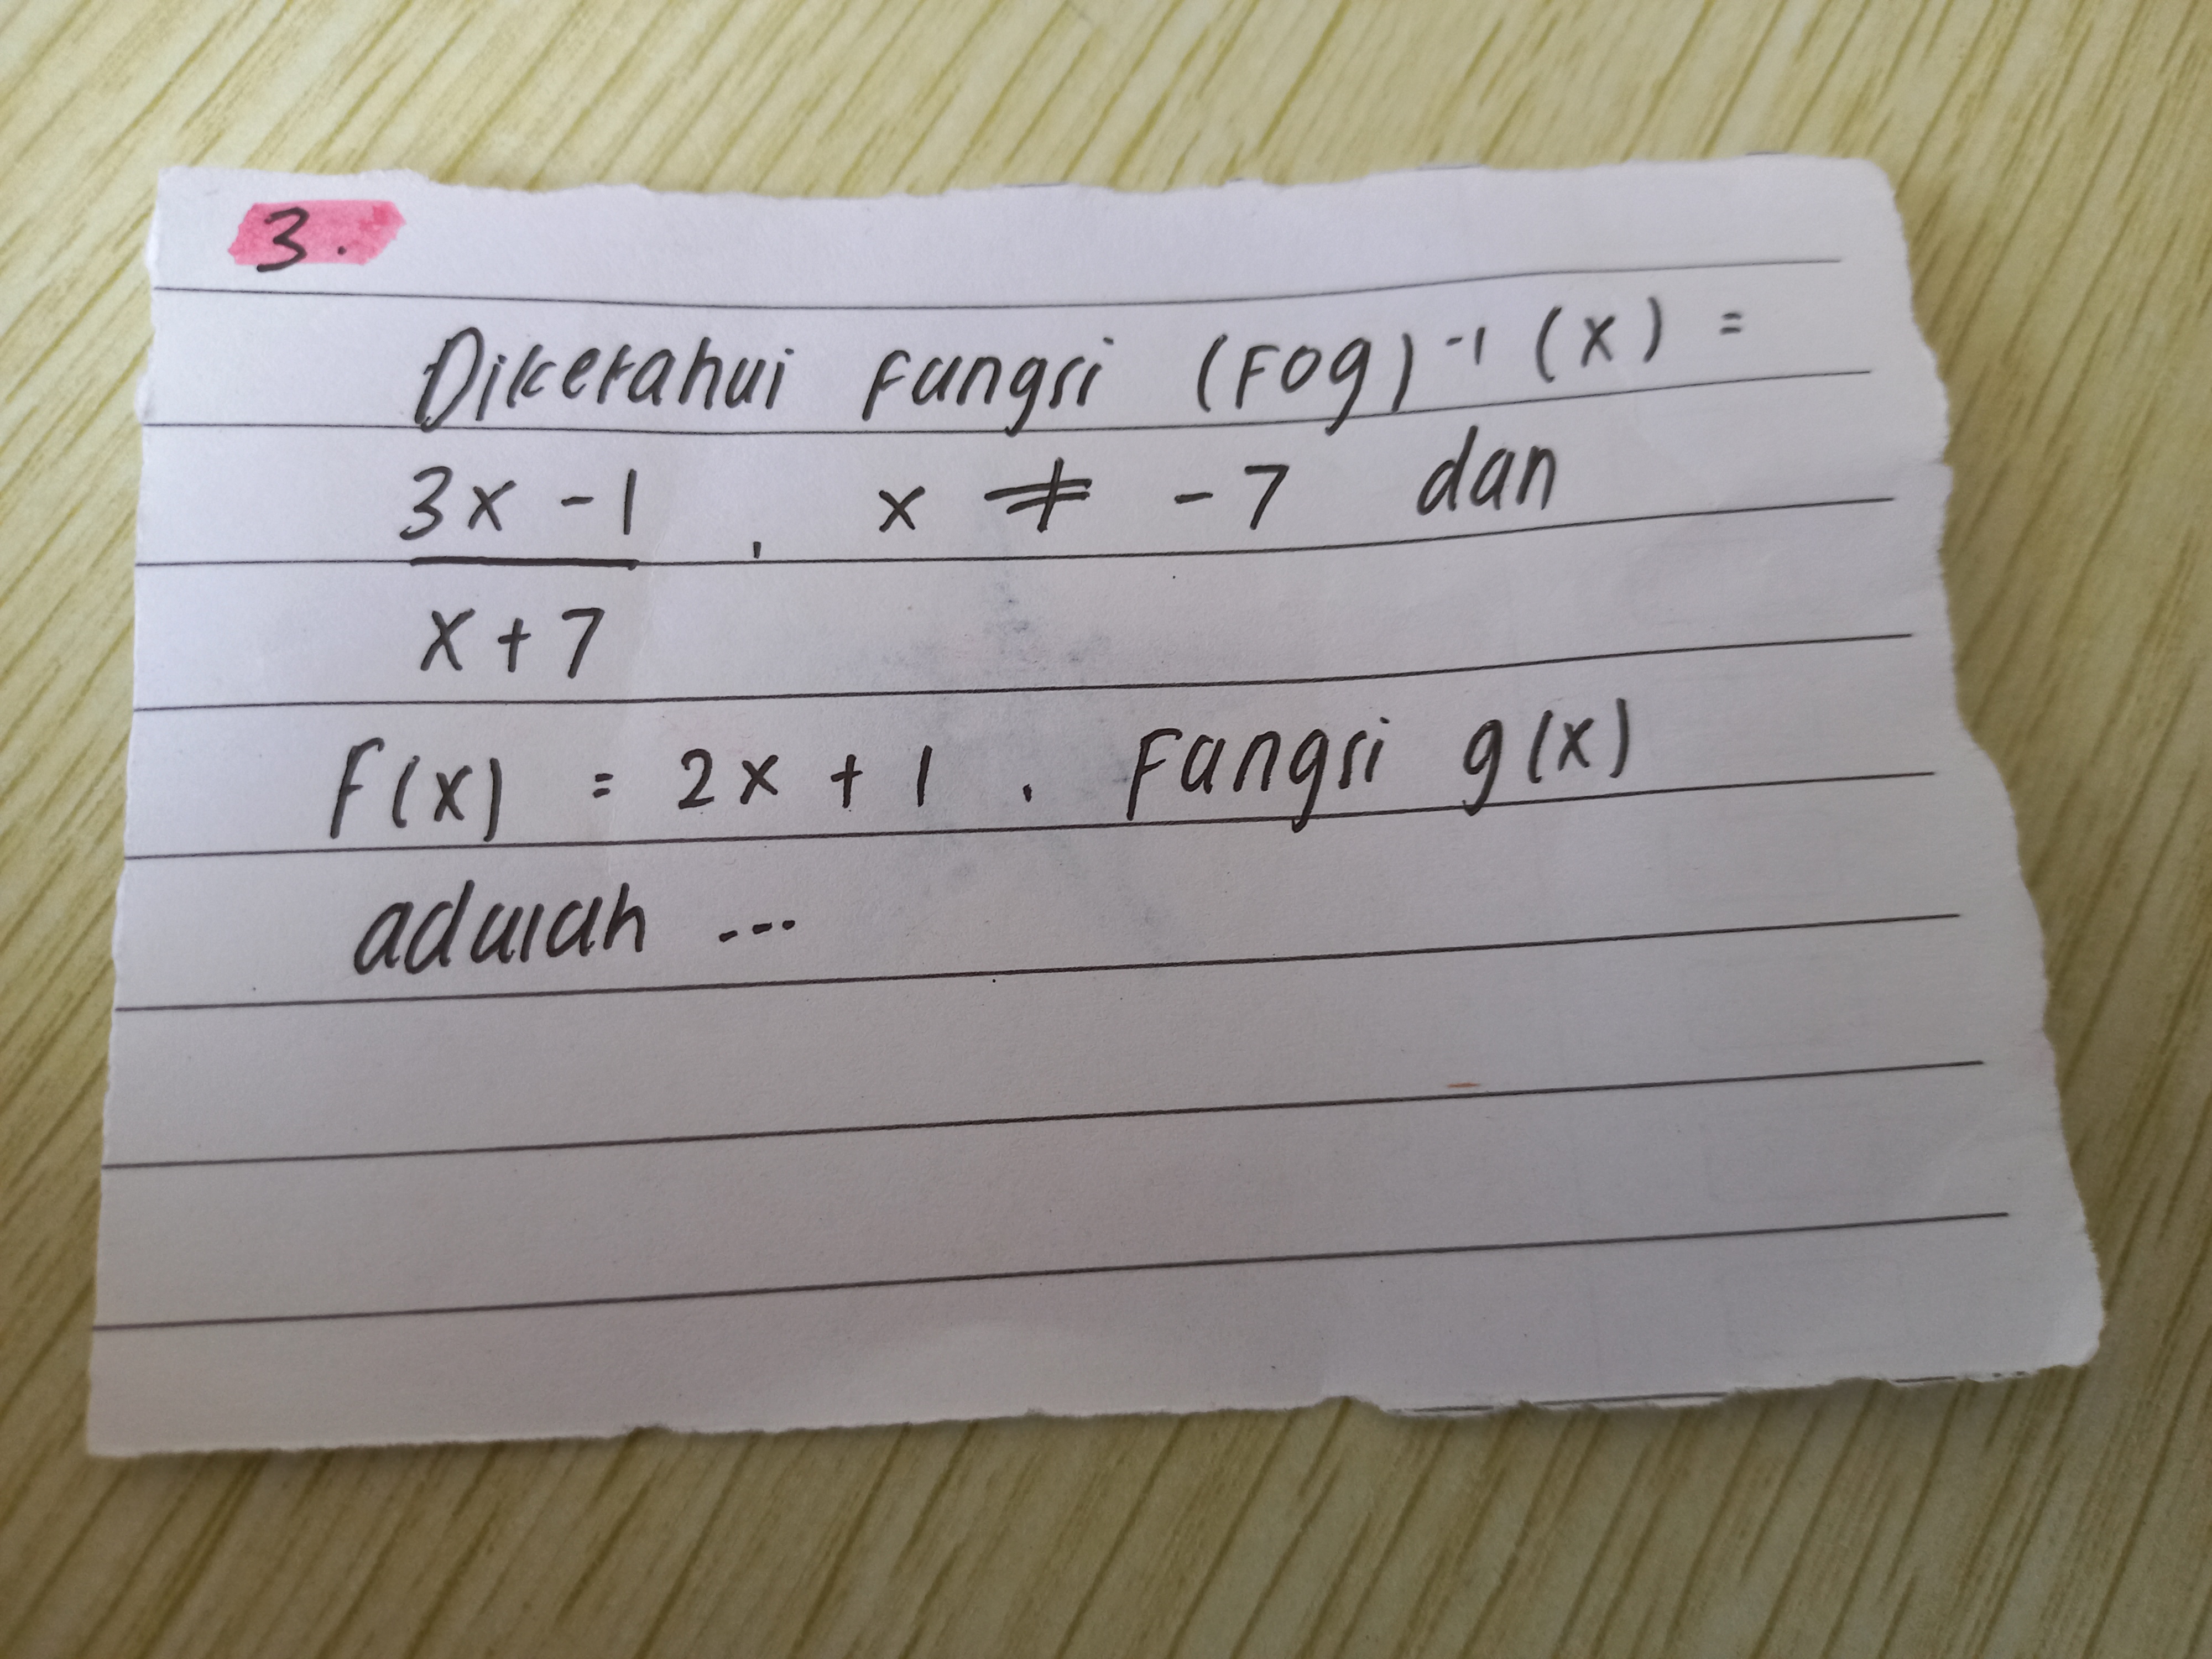 3.
Diketahui fungsi (Fog)⁻¹ (x) =
3x - 1 , x ≠ -7 dan
x + 7
f(x) = 2x + 1 , Fungsi g(x)
adalah ...